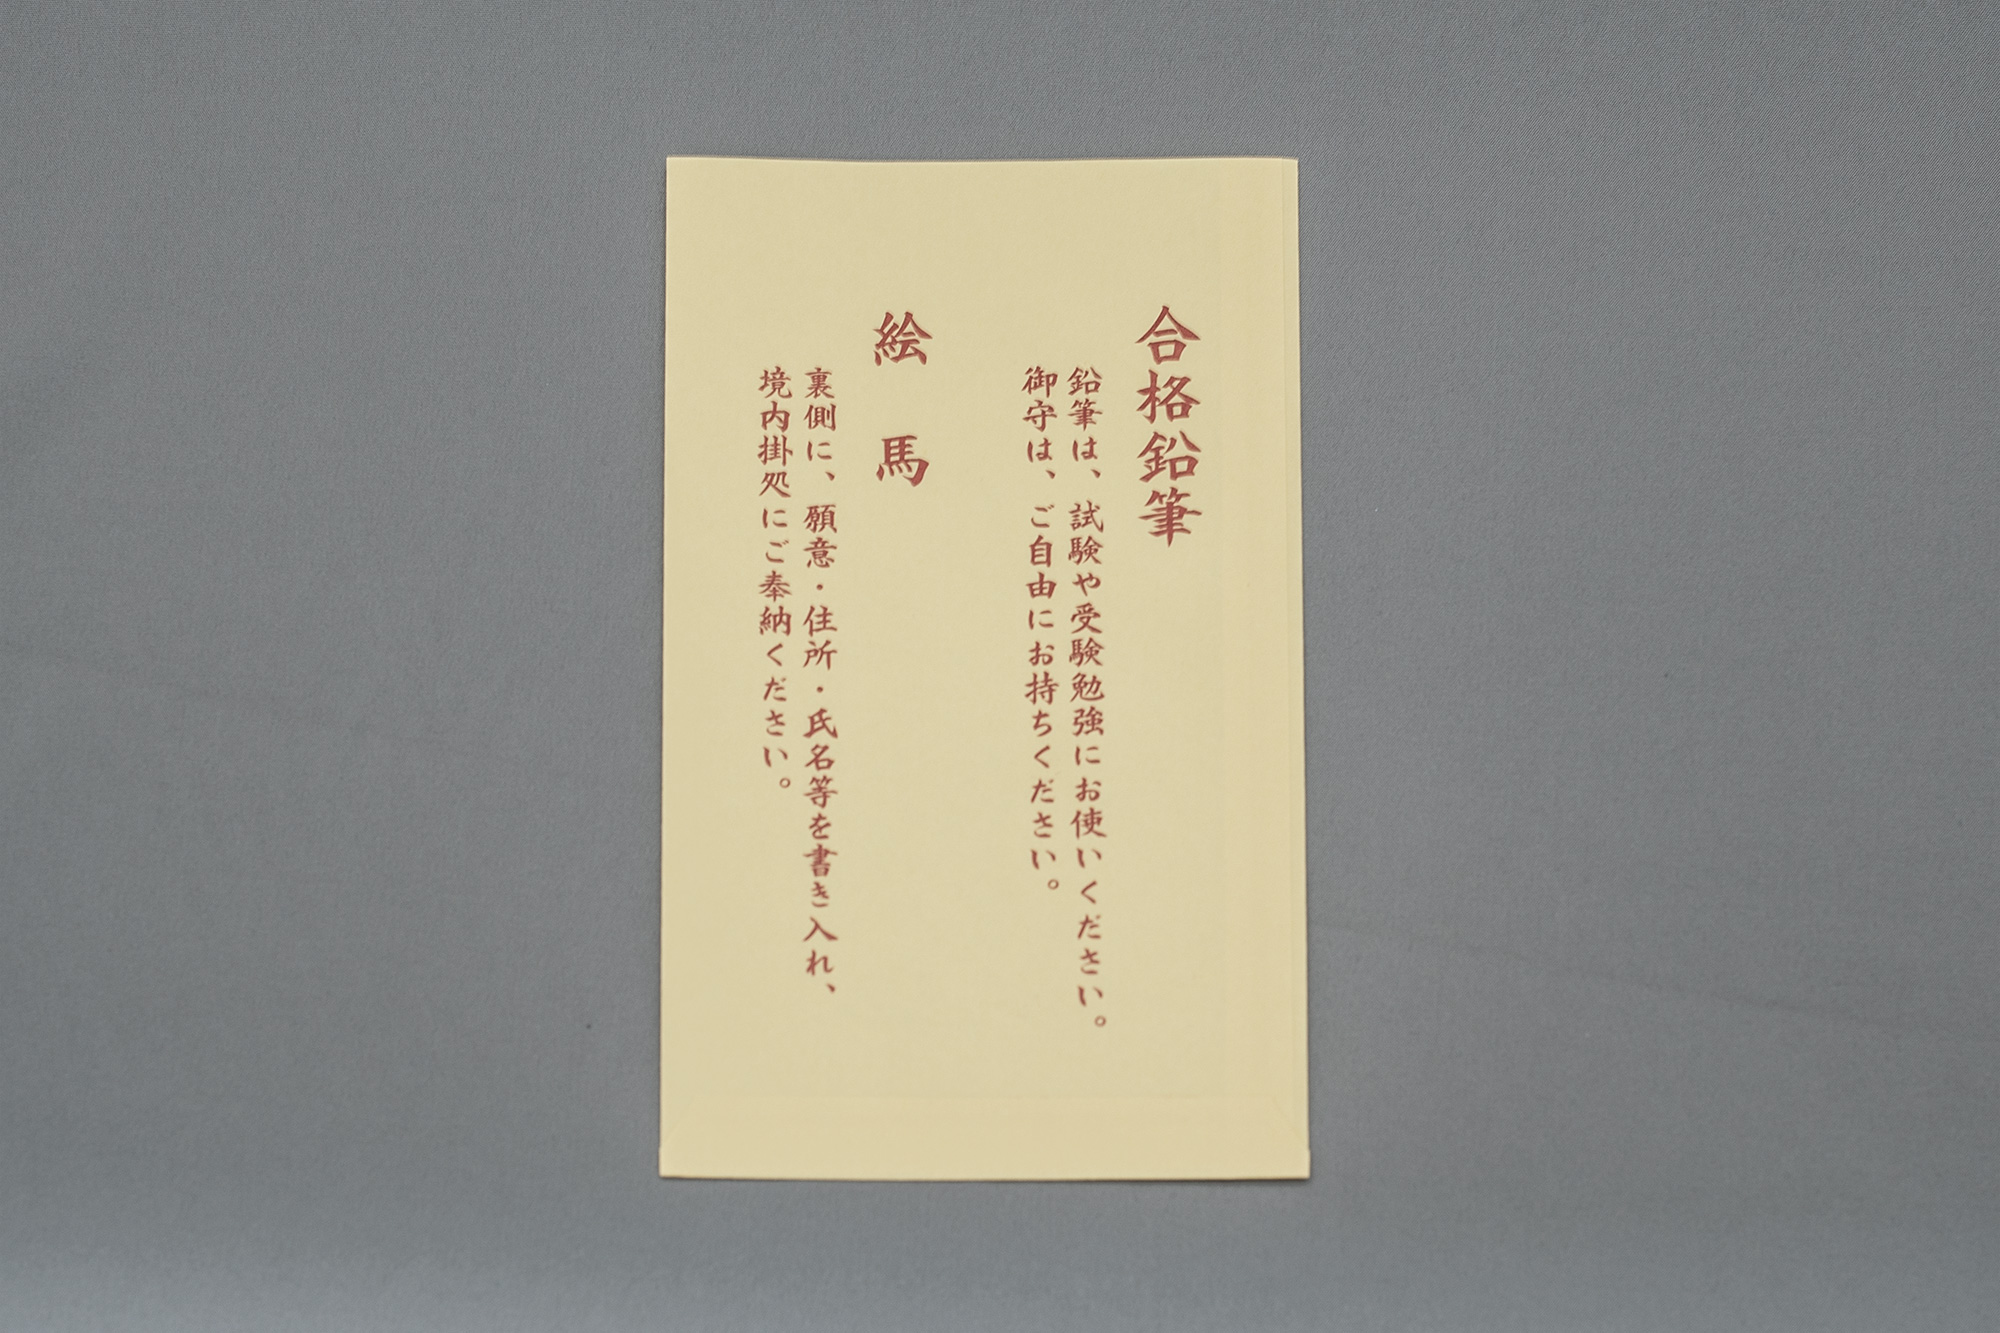 合格鉛筆
鉛筆は、試験や受験勉強にお使いください。
御守は、ご自由にお持ちください。
絵馬
裏側に、願意・住所・氏名等を書き入れ、
境内掛処にご奉納ください。